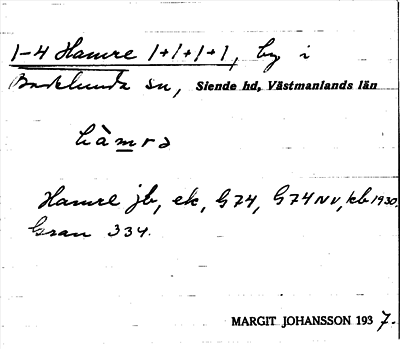 1-4 Hamre 1+1+1+1, by i
Badelunda sn, Siende hd, Västmanlands län
hàmra
Hamre jb, ek, G74, G74NV, kb 1930.
Gran 334.
MARGIT JOHANSSON 1937.